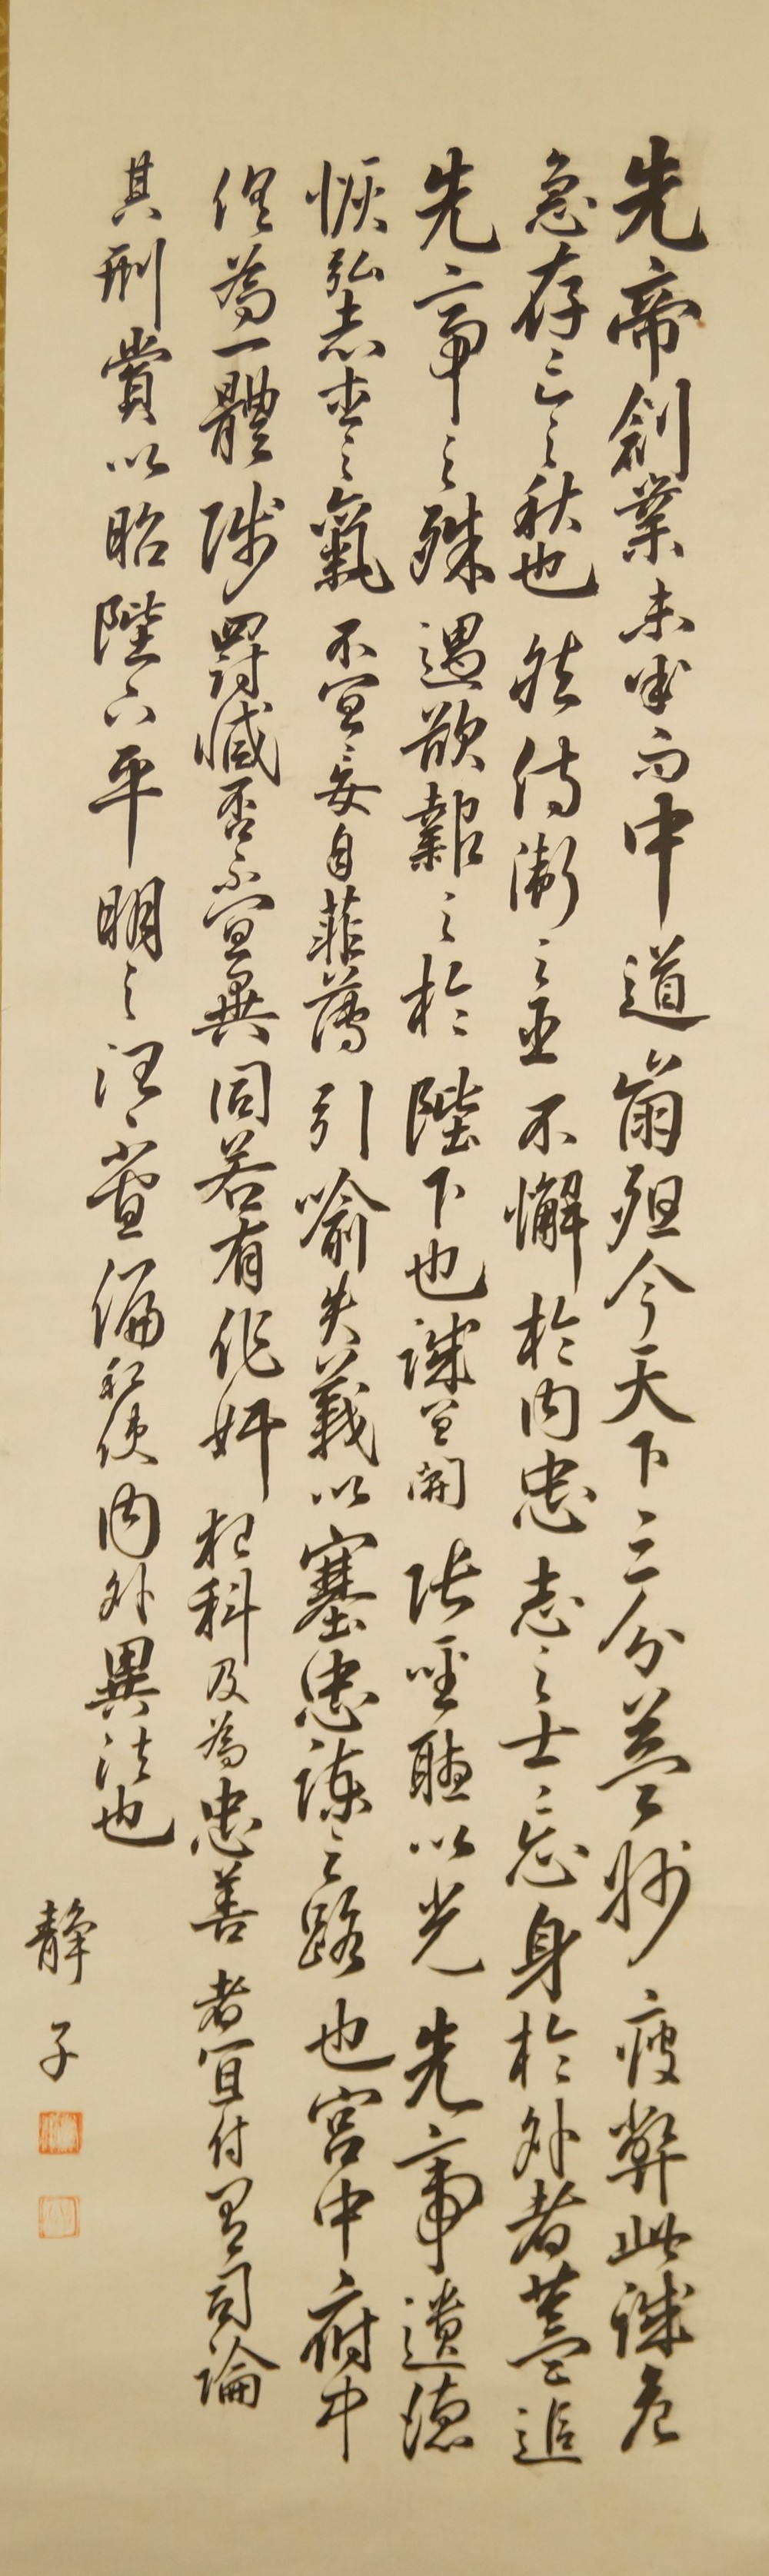 先帝創業未半而中道崩殂今天下三分益州疲弊此誠危
急存亡之秋也然侍衛之臣不懈於内忠志之士忘身於外者蓋追
先帝之殊遇欲報之於陛下也誠宜開張聖聽以光先帝遺德
恢弘志士之氣不宜妄自菲薄引喻失義以塞忠諫之路也宮中府中
俱為一體陟罰臧否不宜異同若有作奸犯科及為忠善者宜付有司論
其刑賞以昭陛下平明之理不宜偏私使内外異法也
静子